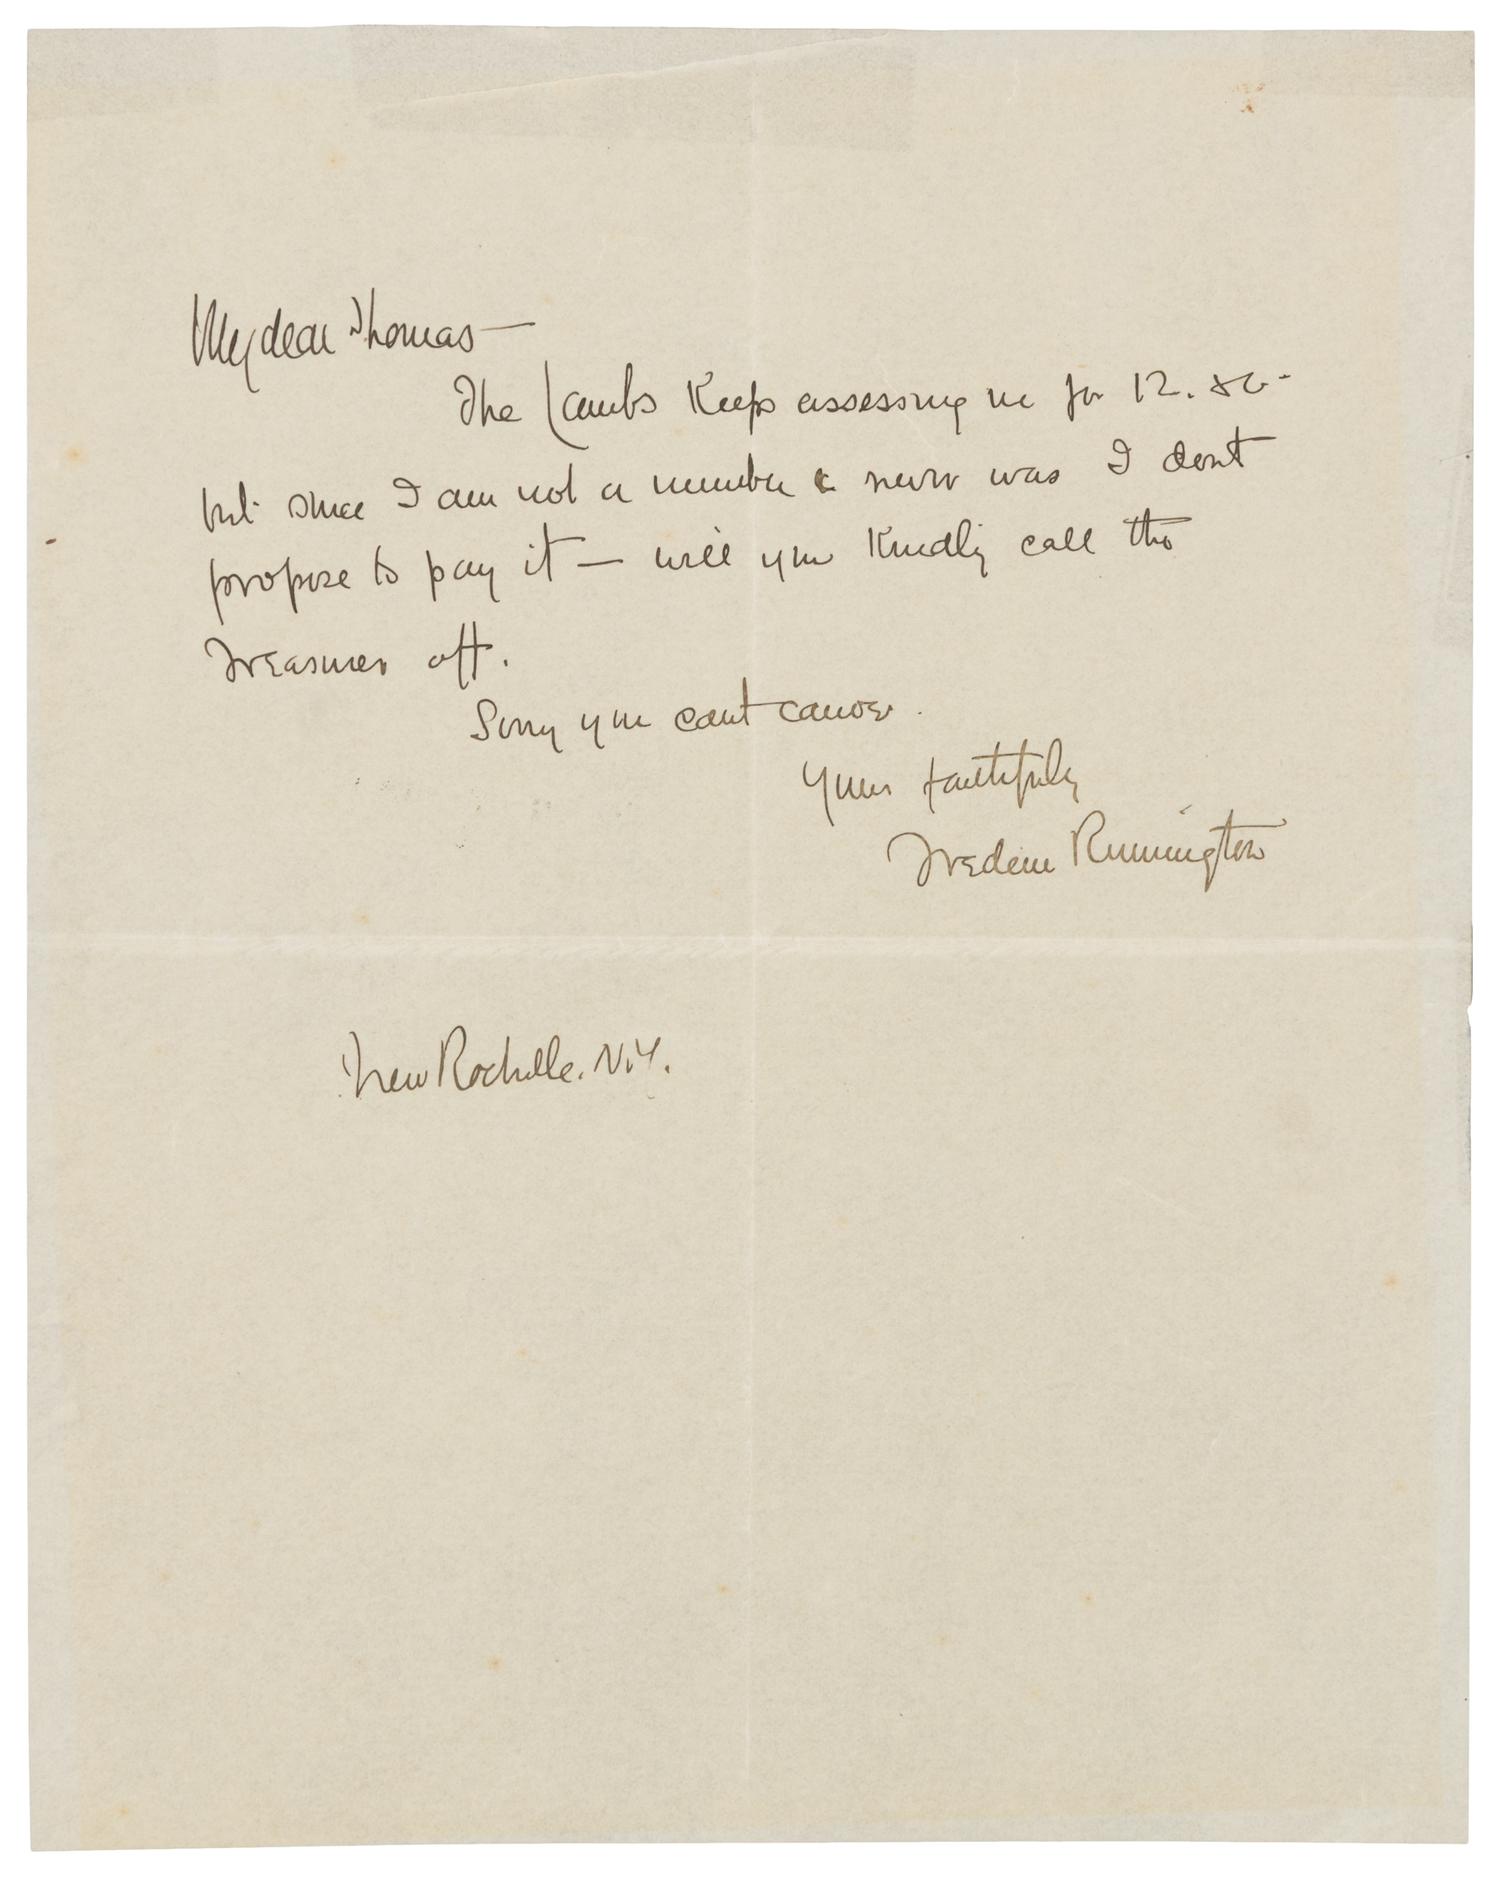 My dear Thomas —
The Lambs Keep assessing me for 12.
but since I am not a member & never was I dont
propose to pay it — will you Kindly call the
Treasurer off.
Sorry you cant canoe.
Yours faithfully
Frederic Remington
New Rochelle. N.Y.